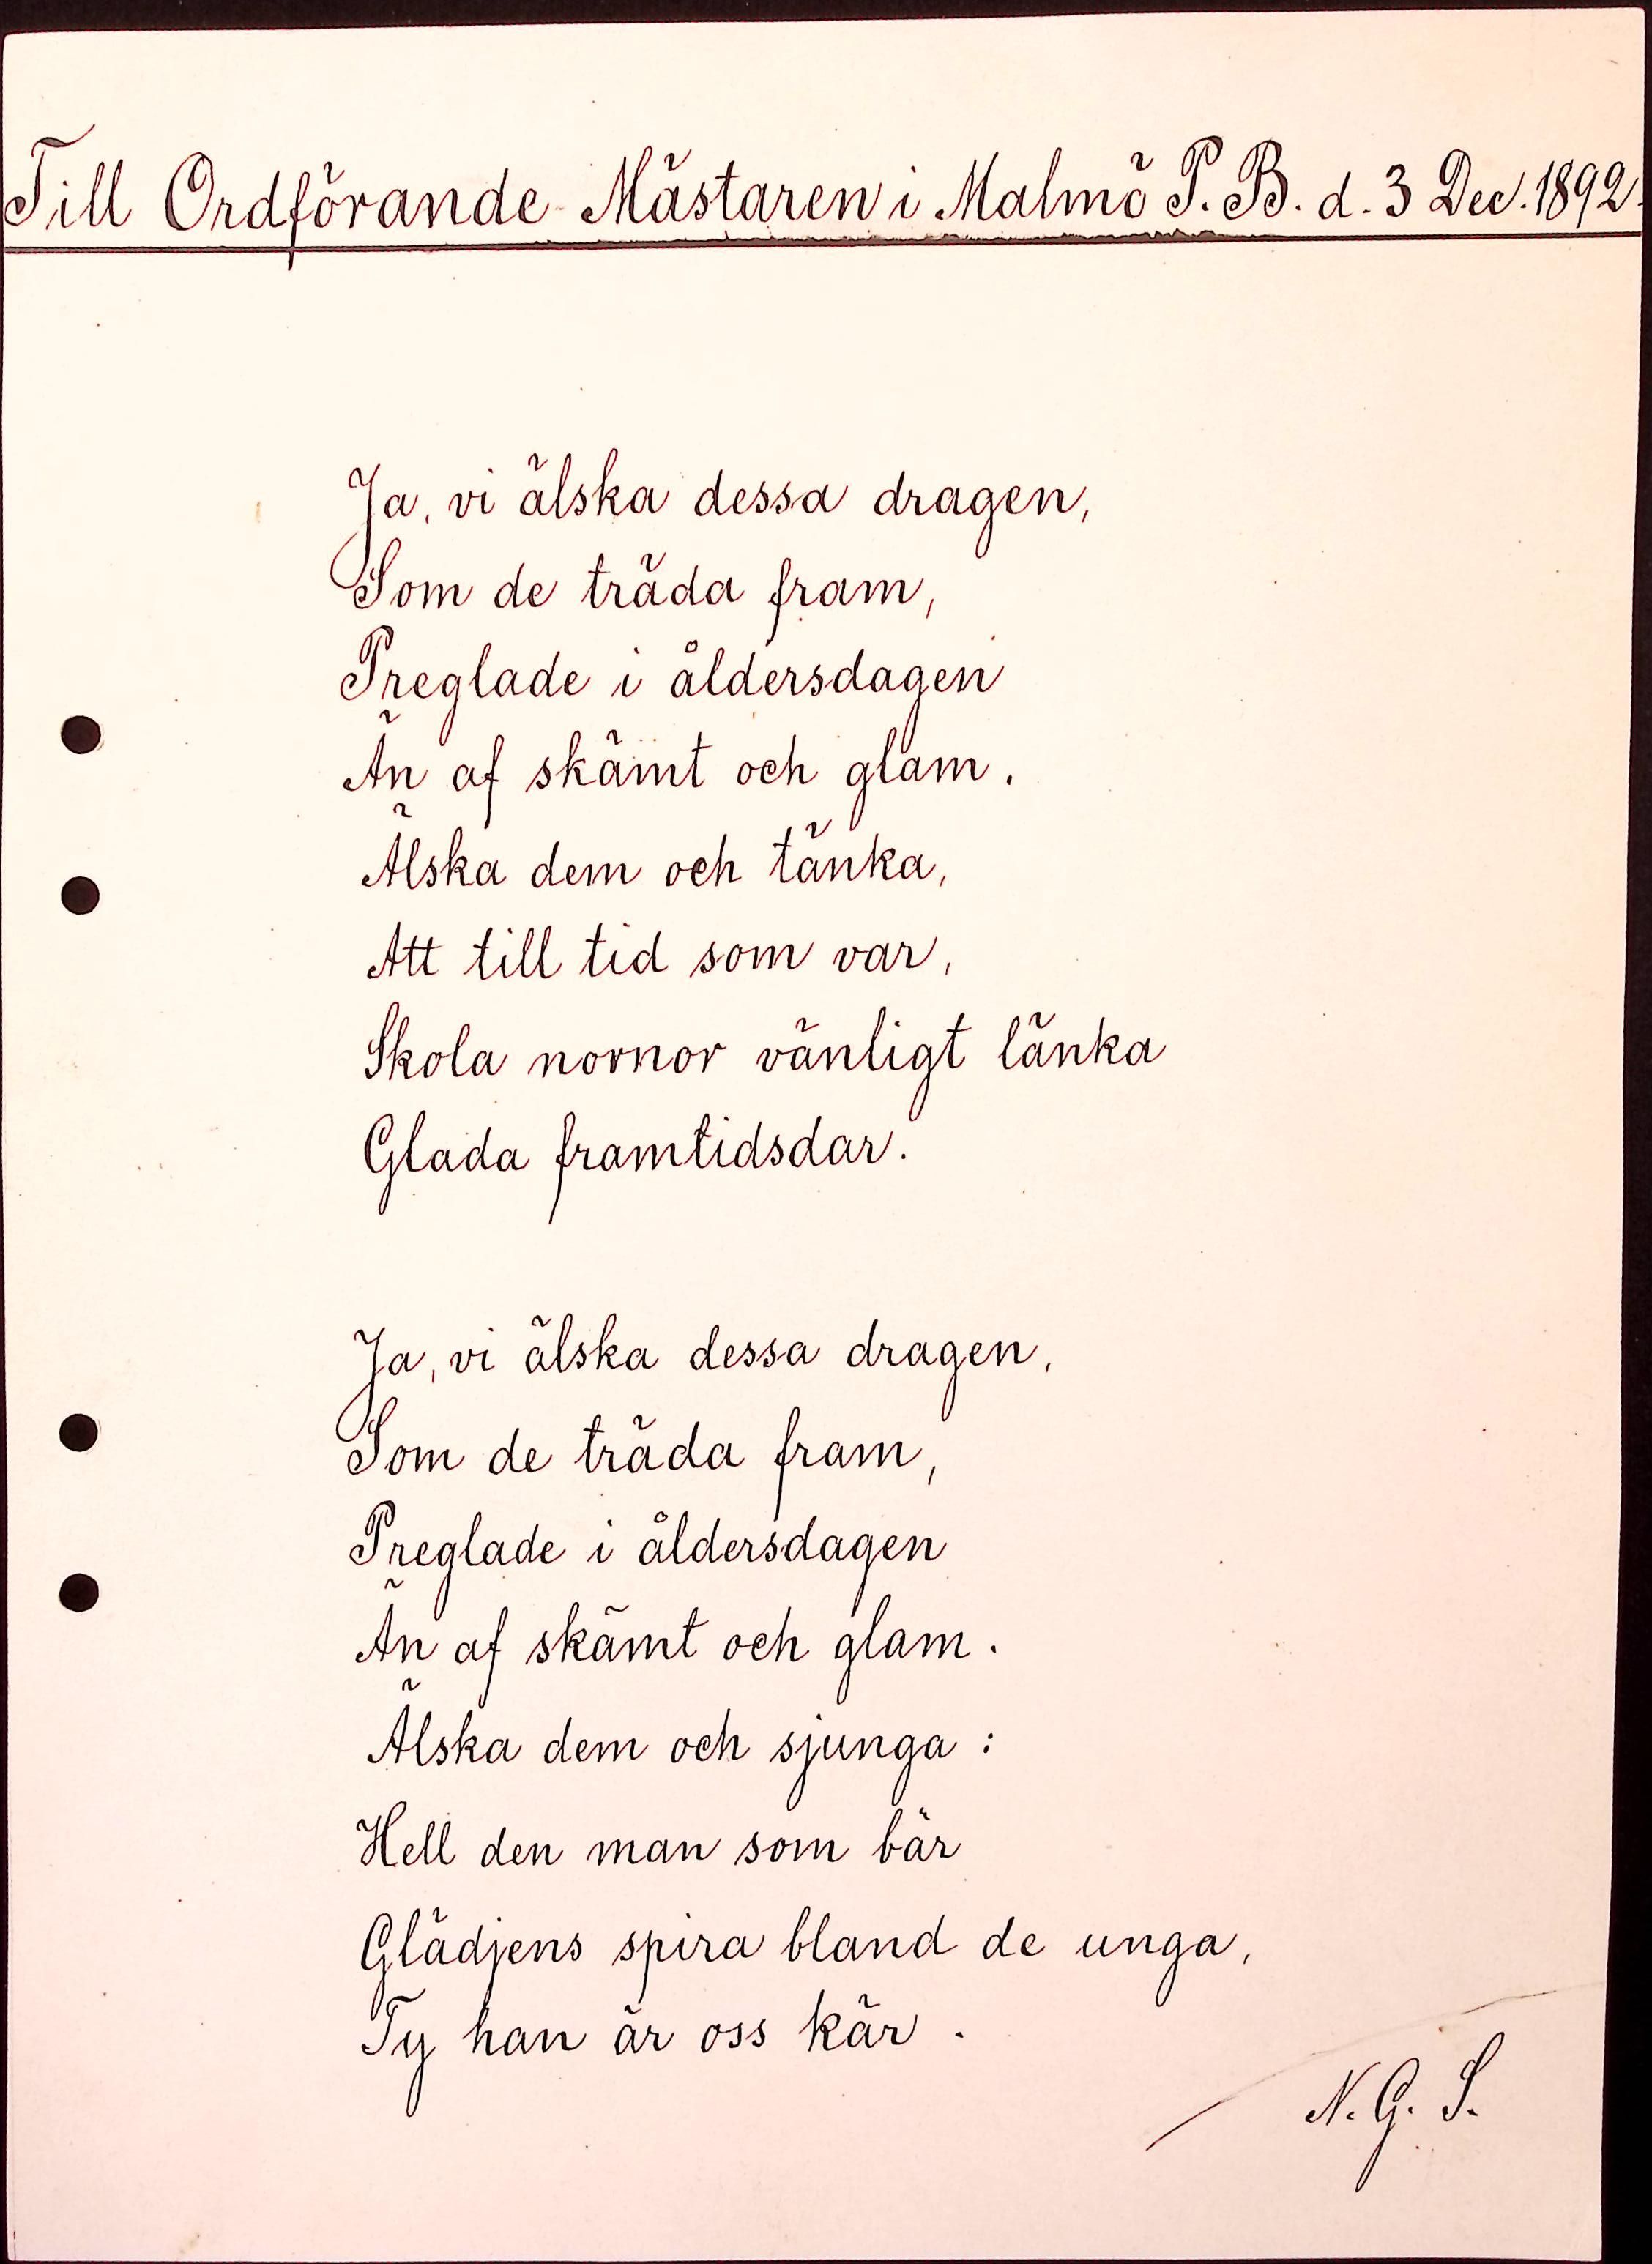 Till Ordförande Mästaren i Malmö P. B. d. 3 Dec. 1892.
Ja, vi älska dessa dragen,
Som de träda fram,
Preglade i åldersdagen
Än af skämt och glam.
Älska dem och tänka,
Att till tid som var,
Skola nornor vänligt länka
Glada framtidsdar.
Ja, vi älska dessa dragen,
Som de träda fram,
Preglade i åldersdagen
Än af skämt och glam.
Älska dem och sjunga:
Hell den man som bär
Glädjens spira bland de unga,
Ty han är oss kär.
N. G. S.